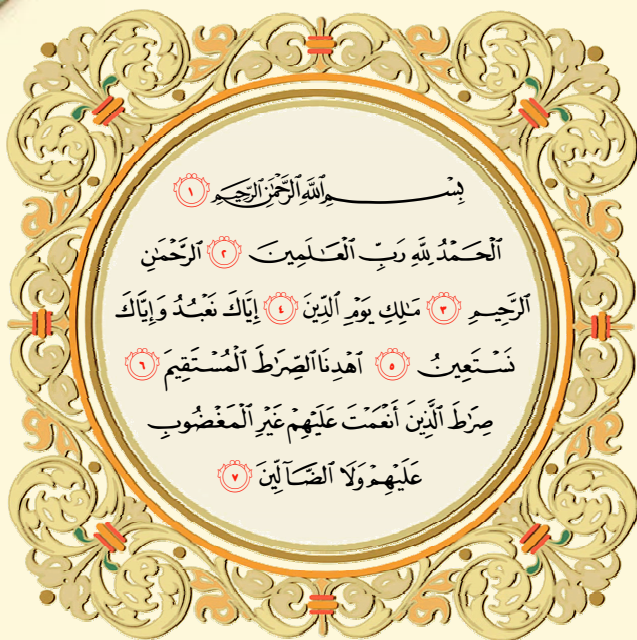 بِسْمِ اللَّهِ الرَّحْمَٰنِ الرَّحِيمِ ١
الْحَمْدُ لِلَّهِ رَبِّ الْعَالَمِينَ ٢ الرَّحْمَٰنِ
الرَّحِيمِ ٣ مَالِكِ يَوْمِ الدِّينِ ٤ إِيَّاكَ نَعْبُدُ وَإِيَّاكَ
نَسْتَعِينُ ٥ اهْدِنَا الصِّرَاطَ الْمُسْتَقِيمَ ٦
صِرَاطَ الَّذِينَ أَنْعَمْتَ عَلَيْهِمْ غَيْرِ الْمَغْضُوبِ
عَلَيْهِمْ وَلَا الضَّآلِّينَ ٧